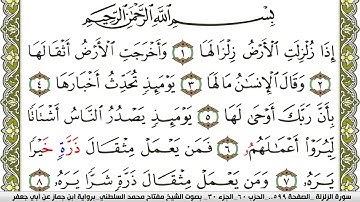 بِسْمِ اللَّهِ الرَّحْمَٰنِ الرَّحِيمِ
إِذَا زُلْزِلَتِ الْأَرْضُ زِلْزَالَهَا ١ وَأَخْرَجَتِ الْأَرْضُ أَثْقَالَهَا
٢ وَقَالَ الْإِنسَانُ مَا لَهَا ٣ يَوْمَئِذٍ تُحَدِّثُ أَخْبَارَهَا ٤
بِأَنَّ رَبَّكَ أَوْحَىٰ لَهَا ٥ يَوْمَئِذٍ يَصْدُرُ النَّاسُ أَشْتَاتًا
لِّيُرَوْا أَعْمَالَهُمُ ٦ فَمَن يَعْمَلْ مِثْقَالَ ذَرَّةٍ خَيْرًا
يَرَهُ ٧ وَمَن يَعْمَلْ مِثْقَالَ ذَرَّةٍ شَرًّا يَرَهُ ٨
سورة الزلزلة . الصفحة ٥٩٩ . الحزب ٦٠ . الجزء ٣٠ . بصوت الشيخ مفتاح محمد السلطني . برواية ابن جماز عن أبي جعفر